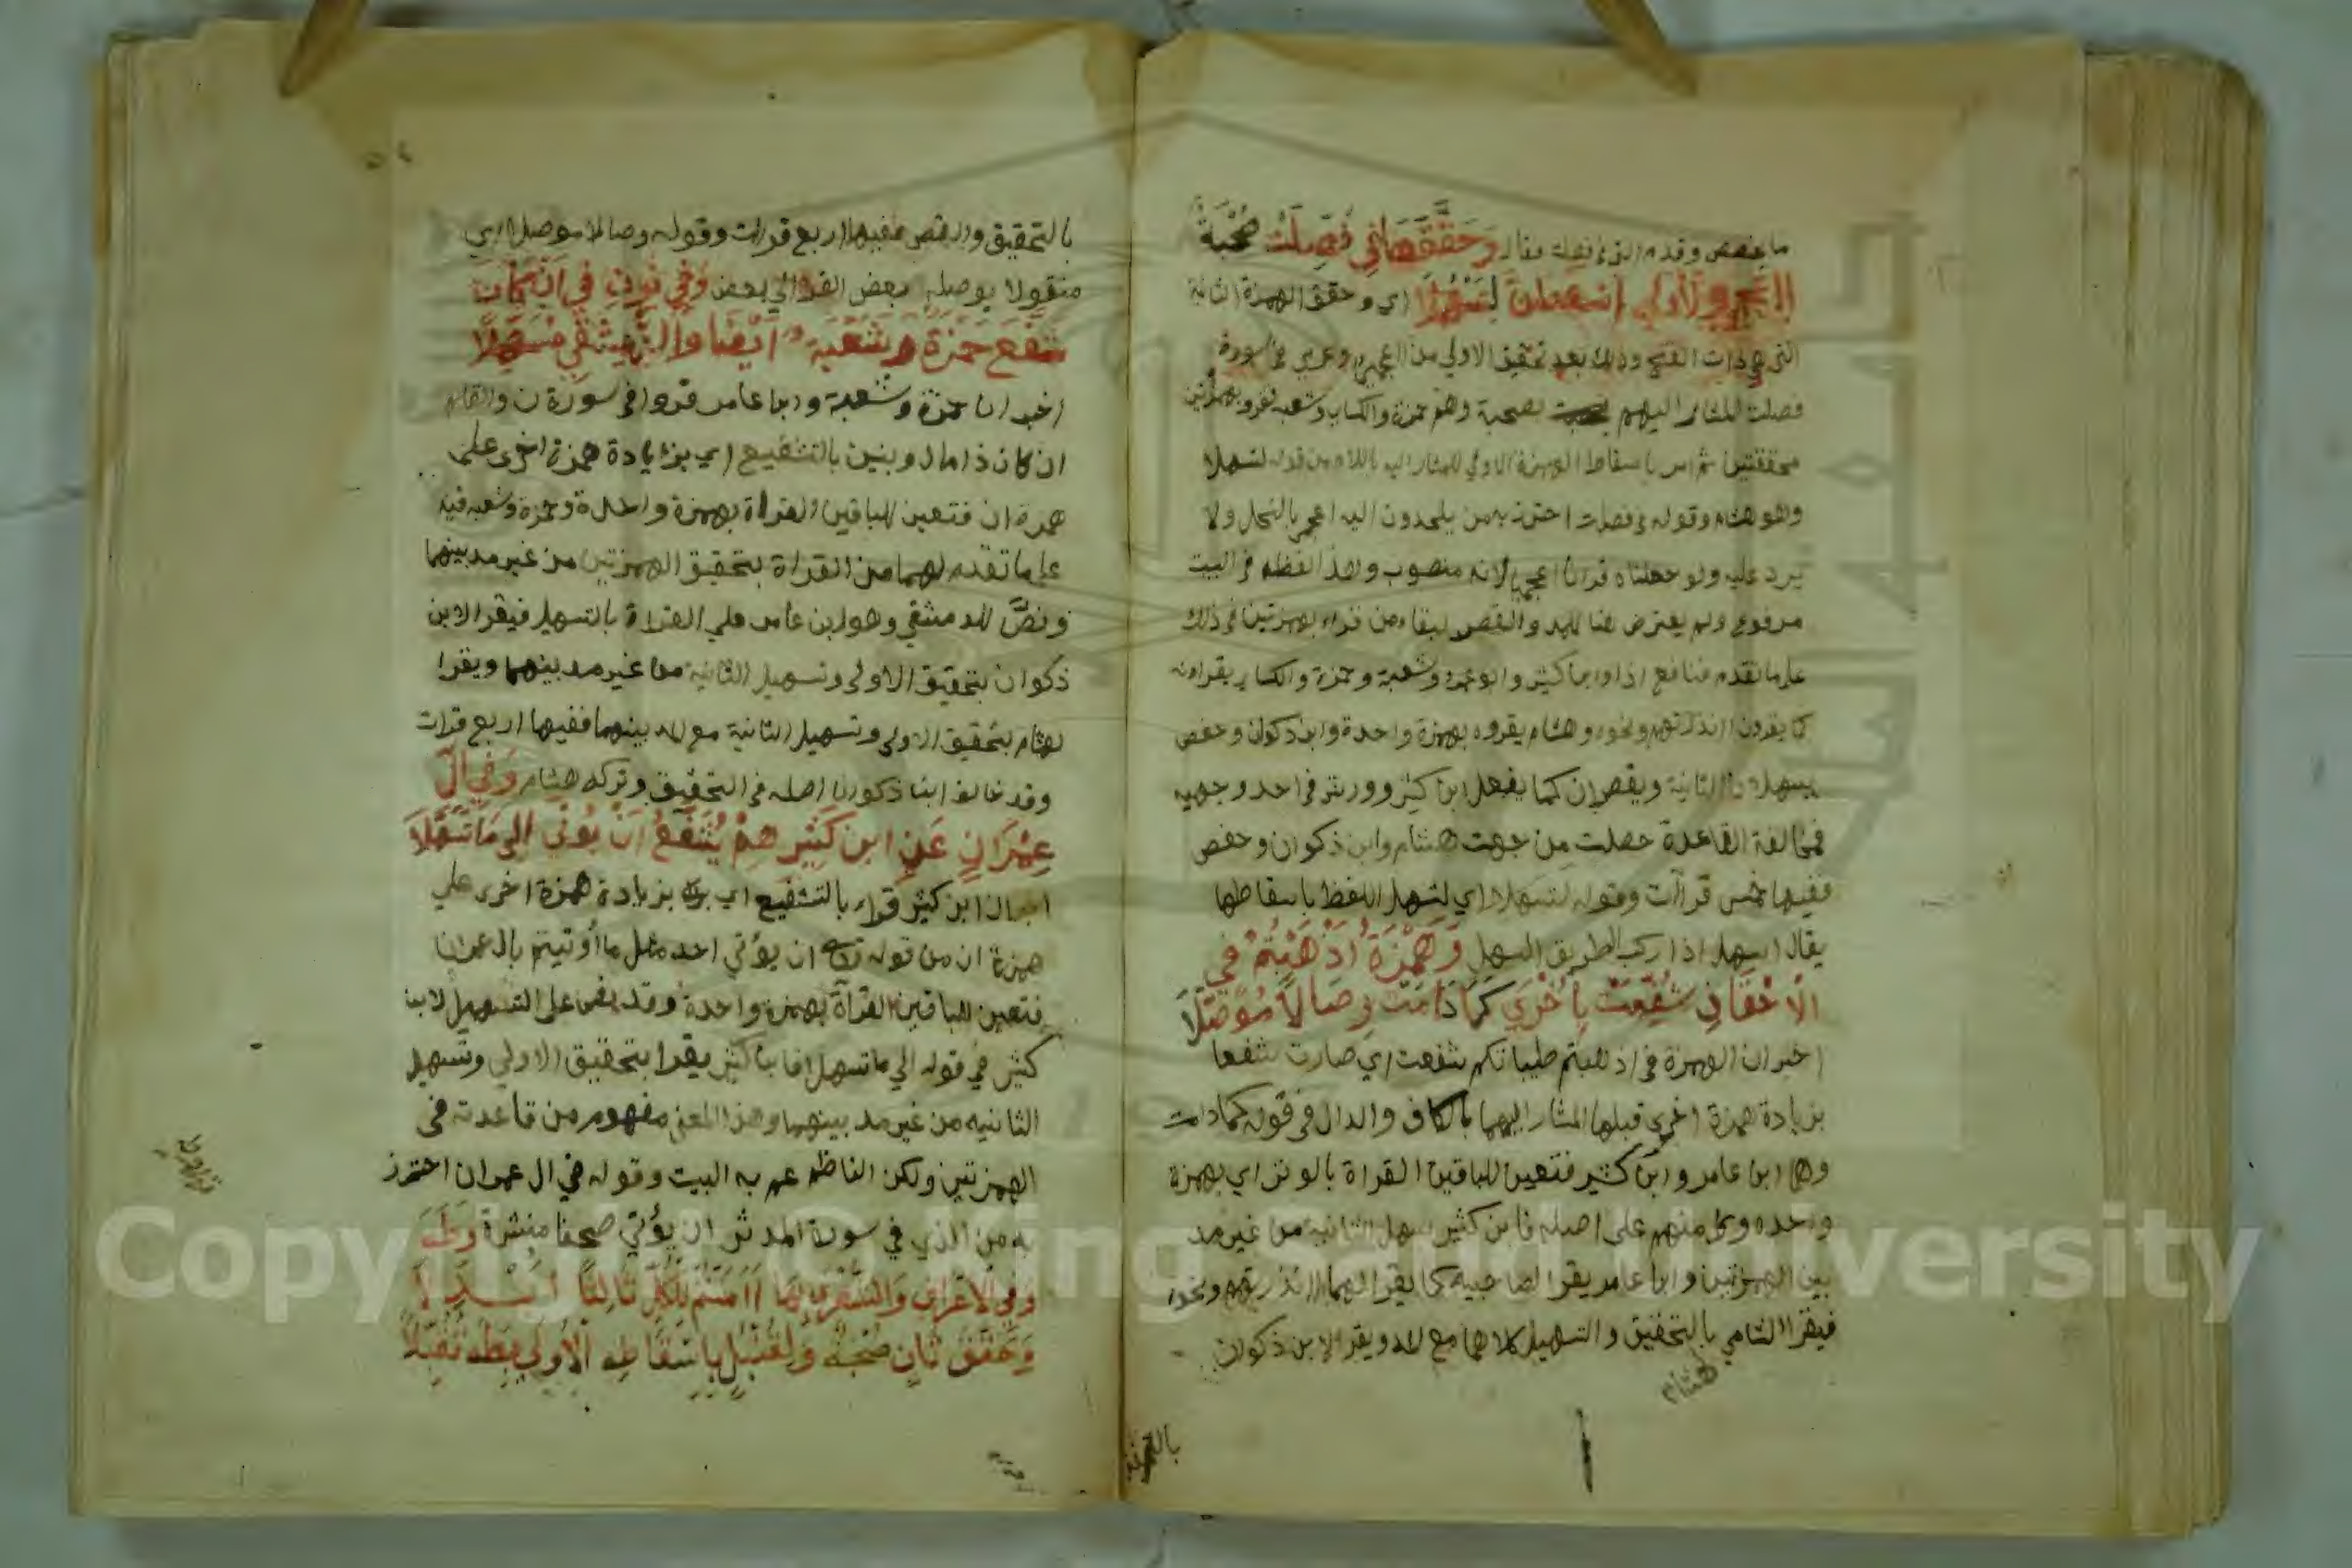 ما بعضه وقدم الذي فصلت فقال وَحَقَّقَهَا فِي فُصِّلَتْ صُحْبَةٌ
ءَأَعْجَمِيٌّ وَالأُولَى أَسْقِطَنَّ لِتَسْهُلَا اي وحقق الهمزة الثانية
التي هي ذات الفتح وذلك بعد تحقيق الاولي من ااعجمي وعربي في سورة
فصلت للمشار اليهم بصحبة وهم حمزة والكساي وشعبة فقروا بهمزتين
محققتين ثم امر باسقاط الهمزة الاولي للمشار اليه باللام من قوله لتسهلا
وهو هشام وقوله في فصلت احترز به من يلحدون اليه اعجمي بالنحل ولا
يرد عليه ولو جعلناه قرانا اعجميا لانه منصوب وهذا لفظه في البيت
مرفوع ولم يعترض هنا للمد والقصر لبقاء من قراء بهمزتين في ذلك
علي ما تقدم فنافع اذا وابن كثير وابو عمرو وشعبة وحمزة والكساي يقراونه
كما يقرون اانذرتهم ونحوه وهشام يقروه بهمزة واحدة وابن ذكوان وحفص
يسهلان الثانية ويقصران كما يفعل ابن كثير وورش في احد وجهيه
فمخالفة القاعدة حصلت من جهت هشام وابن ذكوان وحفص
ففيها خمس قرآات وقوله لتسهلا اي لتسهل اللفظ باسقاطها
يقال اسهل اذا ركب الطريق السهل وَهَمْزَةُ أَذْهَبْتُمْ فِي
الْأَحْقَافِ شُفِّعَتْ بِأُخْرَى كَمَا دَامَتْ وِصَالًا مُوَصَّلَا
اخبر ان الهمزة في اذهبتم طيباتكم شفعت اي صارت شفعا
بزيادة همزة اخري قبلها للمشار اليهما بالكاف والدال في قوله كما دامت
وهما ابن عامر وابن كثير فتعين للباقين القراة بالوتر اي بهمزة
واحدة وكل منهم على اصله فابن كثير يسهل الثانية من غير مد
بين الهمزتين وابن عامر يقرا لصاحبيه كما يقرا لهما اانذرتهم ونحوه
فيقرا الشامي بالتحقيق والتسهيل كلاهما مع المد ويقرا لابن ذكوان
هشام
بالتحقيق
بالتحقيق والقصر ففيها اربع قرات وقوله وصالا موصلا اي
منقولا يوصله بعض القرا الي بعض وَفِي نُونَ فِي أَنْ كَانَ
شَفَّعَ حَمْزَةٌ وَشُعْبَةُ أَيْضًا وَالدِّمَشْقِي مُسَهِّلَا
اخبر ان حمزة وشعبة وابن عامر قروا في سورة ن والقلم
ان كان ذا مال وبنين بالتشفيع اي بزيادة همزة اخري علي
همزة ان فتعين للباقين القراة بهمزة واحدة وحمزة وشعبة فيه
علي ما تقدم لهما من القراة بتحقيق الهمزتين من غير مد بينهما
ونصّ للدمشقي وهو ابن عامر علي القراة بالتسهيل فيقرا لابن
ذكوان بتحقيق الاولي وتسهيل الثانية من غير مد بينهما ويقرا
لهشام بتحقيق الاولي وتسهيل الثانية مع المد بينهما ففيها اربع قرات
وقد خالف ابن ذكوان اصله في التحقيق وتركه هشام وَفِي آلِ
عِمْرَانٍ عَنِ ابنِ كَثِيرِهِمْ يُشَفَّعُ أَنْ يُؤْتَى إِلَى مَا تَسَهَّلَا
ان ابن كثير قراء بالتشفيع اي بزيادة همزة اخري علي
همزة ان من قوله ان يؤتي احد مثل ما أوتيتم بال عمران
فتعين للباقين القرآة بهمزة واحدة وقد نص على التسهيل لابن
كثير في قوله الي ما تسهلا فابن كثير يقرا بتحقيق الاولي وتسهيل
الثانيه من غير مد بينهما وهذا المعني مفهوم من قاعدته في
الهمزتين ولكن الناظم عم به البيت وقوله في ال عمران احترز
به من الذي في سورة المدثر ان يؤتي صحفا منشرة وَطَهَ
وَفِي الْأَعْرَافِ وَالشُّعَرَا بِهَا ءَاَمَنْتُمْ لِلْكُلِّ ثَالِثًا أُبْدِلَا
وَحَقَّقَ ثَانٍ صُحْبَةٌ وَلِقُنْبُلٍ بِإِسْقَاطِهِ الْأُولَى بِطَهَ تُقُبِّلَا
Copyright © King Saud University